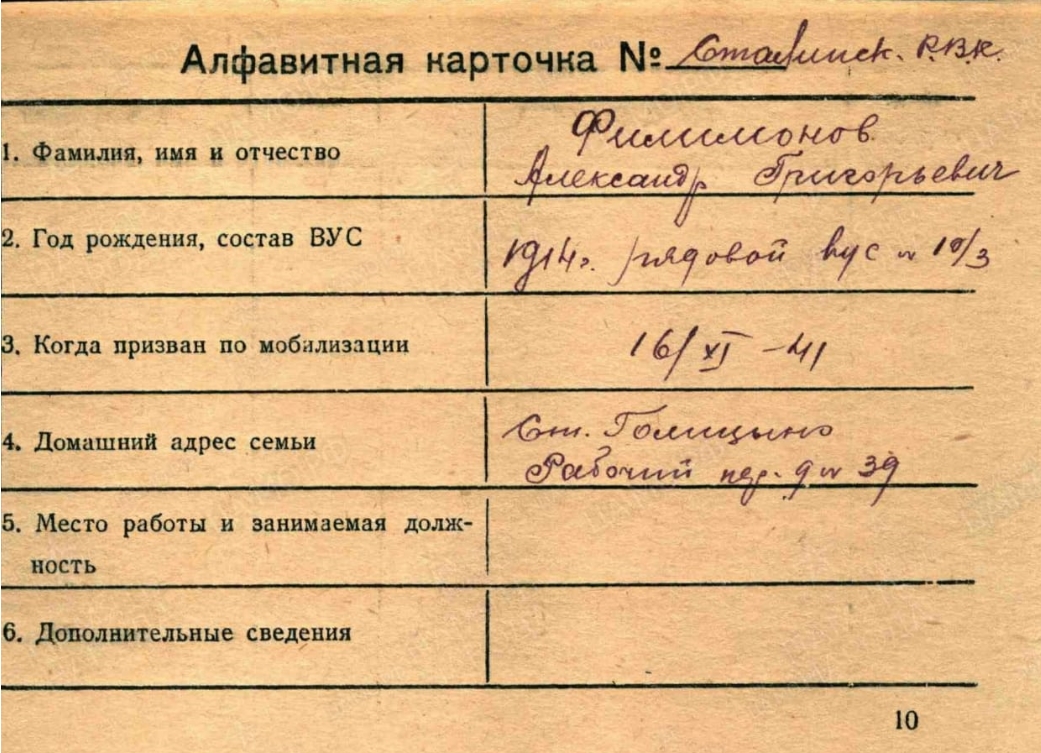 Алфавитная карточка № Сталинск. Р.В.К.
1. Фамилия, имя и отчество
Филимонов
Александр Григорьевич
2. Год рождения, состав ВУС
1914г. рядовой вус № 10/3
3. Когда призван по мобилизации
16/XI -41
4. Домашний адрес семьи
Ст. Голицыно
Рабочий пер. д № 39
5. Место работы и занимаемая долж-
ность
6. Дополнительные сведения
10